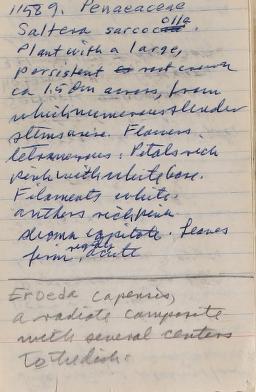 11589. Penaeaceae
Saltera sarcocolla
Plant with a large,
persistent root crown
ca 1.50m across, from
which numerous slender
stems arise. Flowers
tetramerous. Petals rich
pink with white base.
Filaments white.
anthers rich pink
stigma capitate. Leaves
firm, acute
Eroeda capensis,
a radiate composite
with several centers
to the dish.